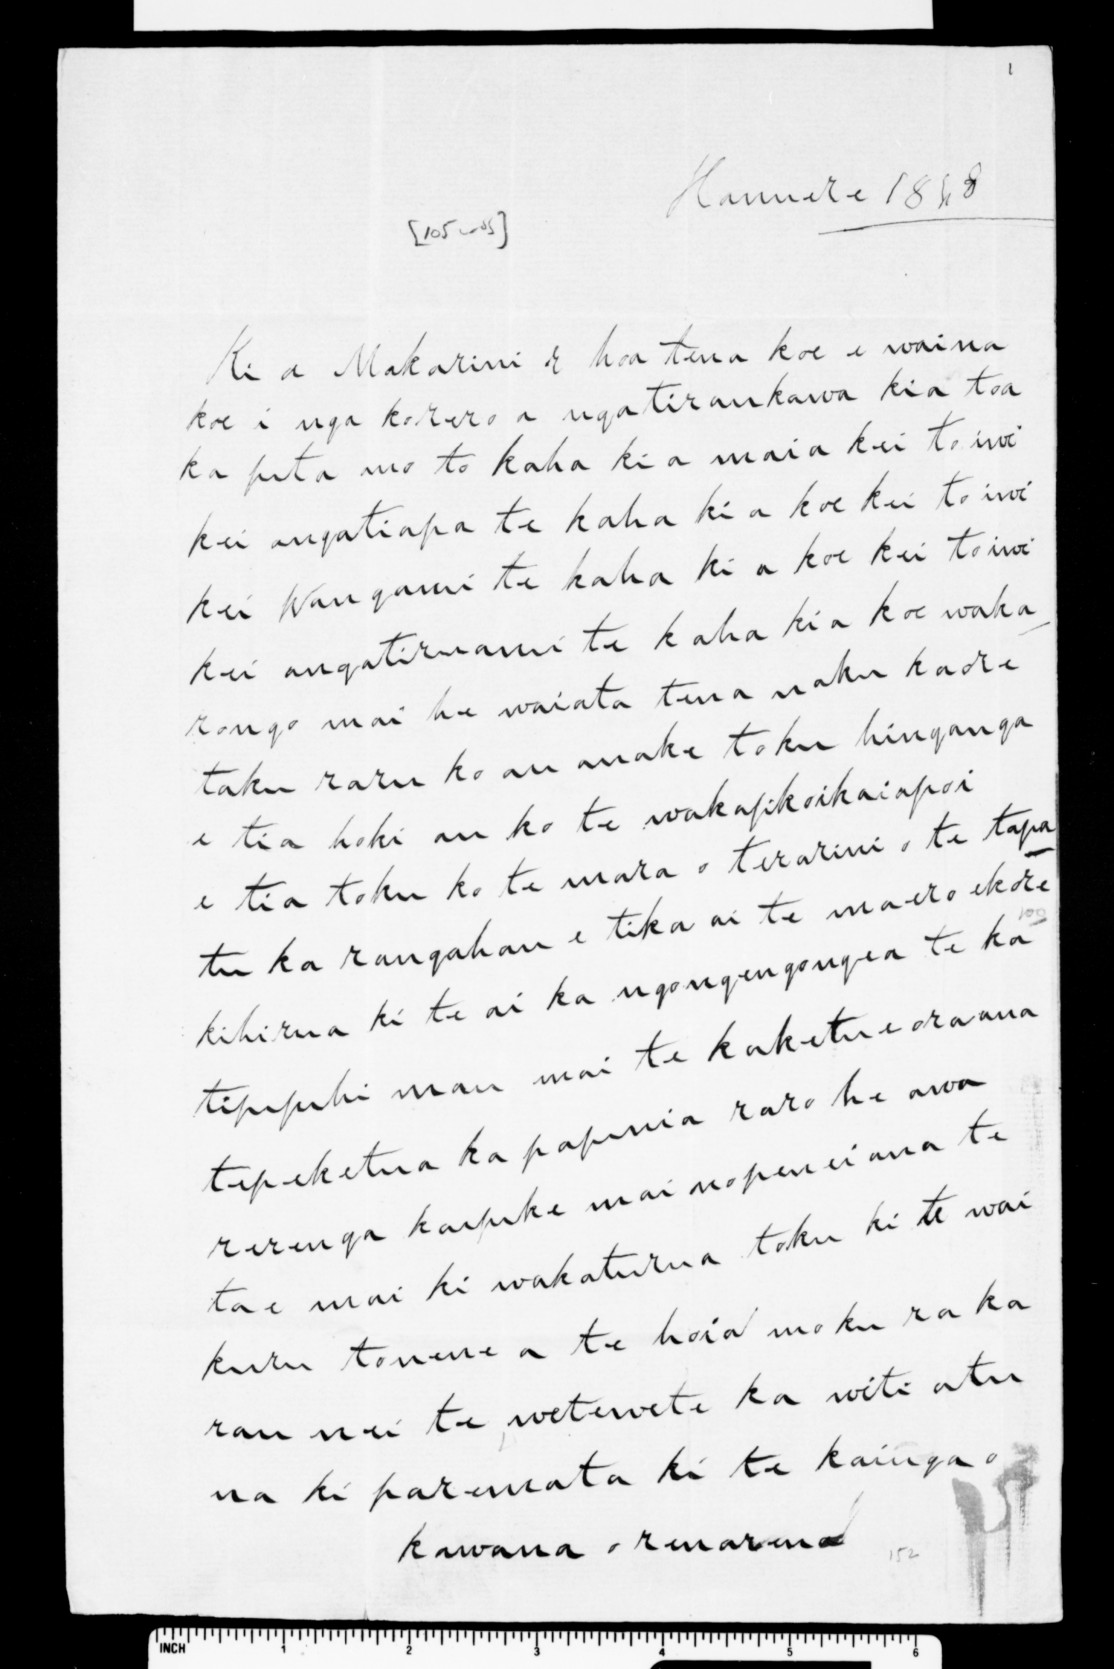 1
Hanuere 1848
[105 cards]
Ki a Makarini e hoa tena koe e waina
koe i nga korero a ngatiraukawa kia toa
ka puta mo to kaha ki a maia kei to iwi
kei angatiapa te kaha ki a koe kei to iwi
kei Wanganui te kaha ki a koe kei to iwi
kei angatiruanui te kaha kia koe waka
rongo mai he waiata tena naku kaore
taku raru ko au anake toku hinganga
e tia hoki au ko te wakapikoikaiapoi
e tia toku ko te mara o terarini o te tapa
tu ka rangahau e tika ai te maero ekore
100
kihirua ki te ai ka ngongengongea te ka
tipupuhi mau mai te kaketu e ora ana
tepeketua ka papunia raro he awa
rerenga kaipuke mai nopeneiana te
tae mai ki wakaturua toku ki te wai
kuru tonene a te hoia moku ra ka
rau nei te wetewete ka witi atu
na ki paremata ki te kainga o
kawana o renarena
152
INCH 1 2 3 4 5 6